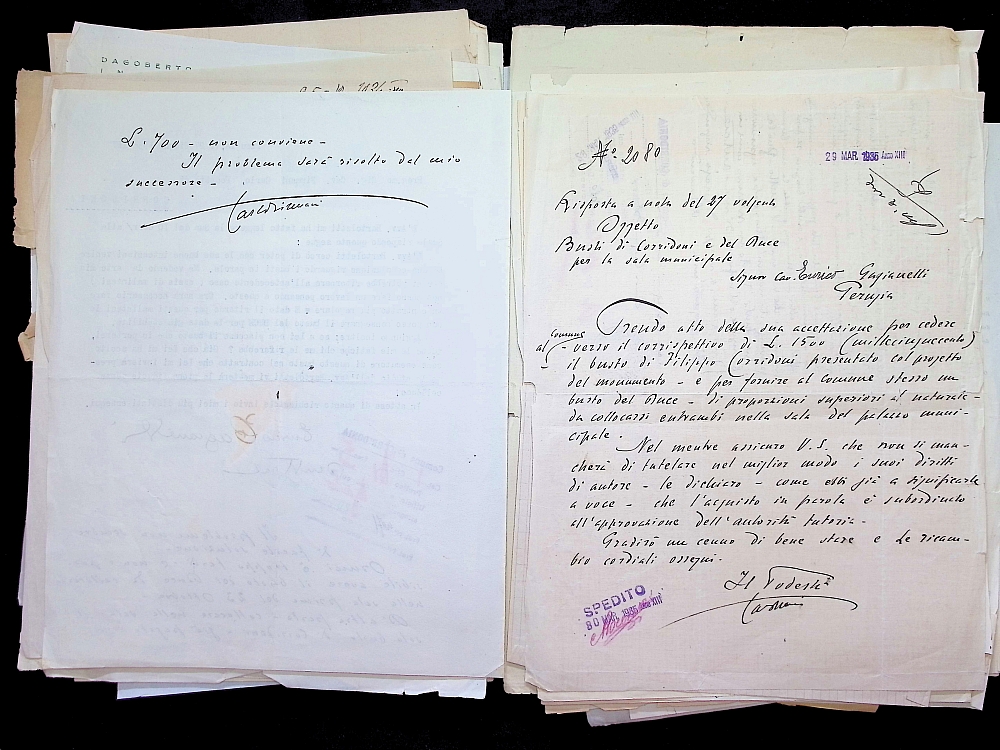 DAGOBERTO
L. 700 - non conviene -
Il problema sarà risolto dal mio
successore -
Nº 2080
29 MAR. 1935 Anno XIII
Risposta a nota del 27 volgente
Oggetto
Busti di Corridoni e del Duce
per la sala municipale
Signor Cav. Enrico Gagianelli
Perugia
Prendo atto della sua accettazione per cedere
al Comune - verso il corrispettivo di L. 1500 (millecinquecento)
il busto di Filippo Corridoni presentato col progetto
del monumento - e per fornire al Comune stesso un
busto del Duce - di proporzioni superiori al naturale -
da collocarsi entrambi nella sala del palazzo muni-
cipale.
Nel mentre assicuro V. S. che non si man-
cherà di tutelare nel miglior modo i suoi diritti
di autore - le dichiaro - come ebbi già a significarle
a voce - che l'acquisto in parola è subordinato
all'approvazione dell'autorità tutoria -
Gradirò un cenno di bene stare e Le ricam-
bio cordiali ossequi.
Il Podestà
SPEDITO
30 MAR. 1935 Anno XIII